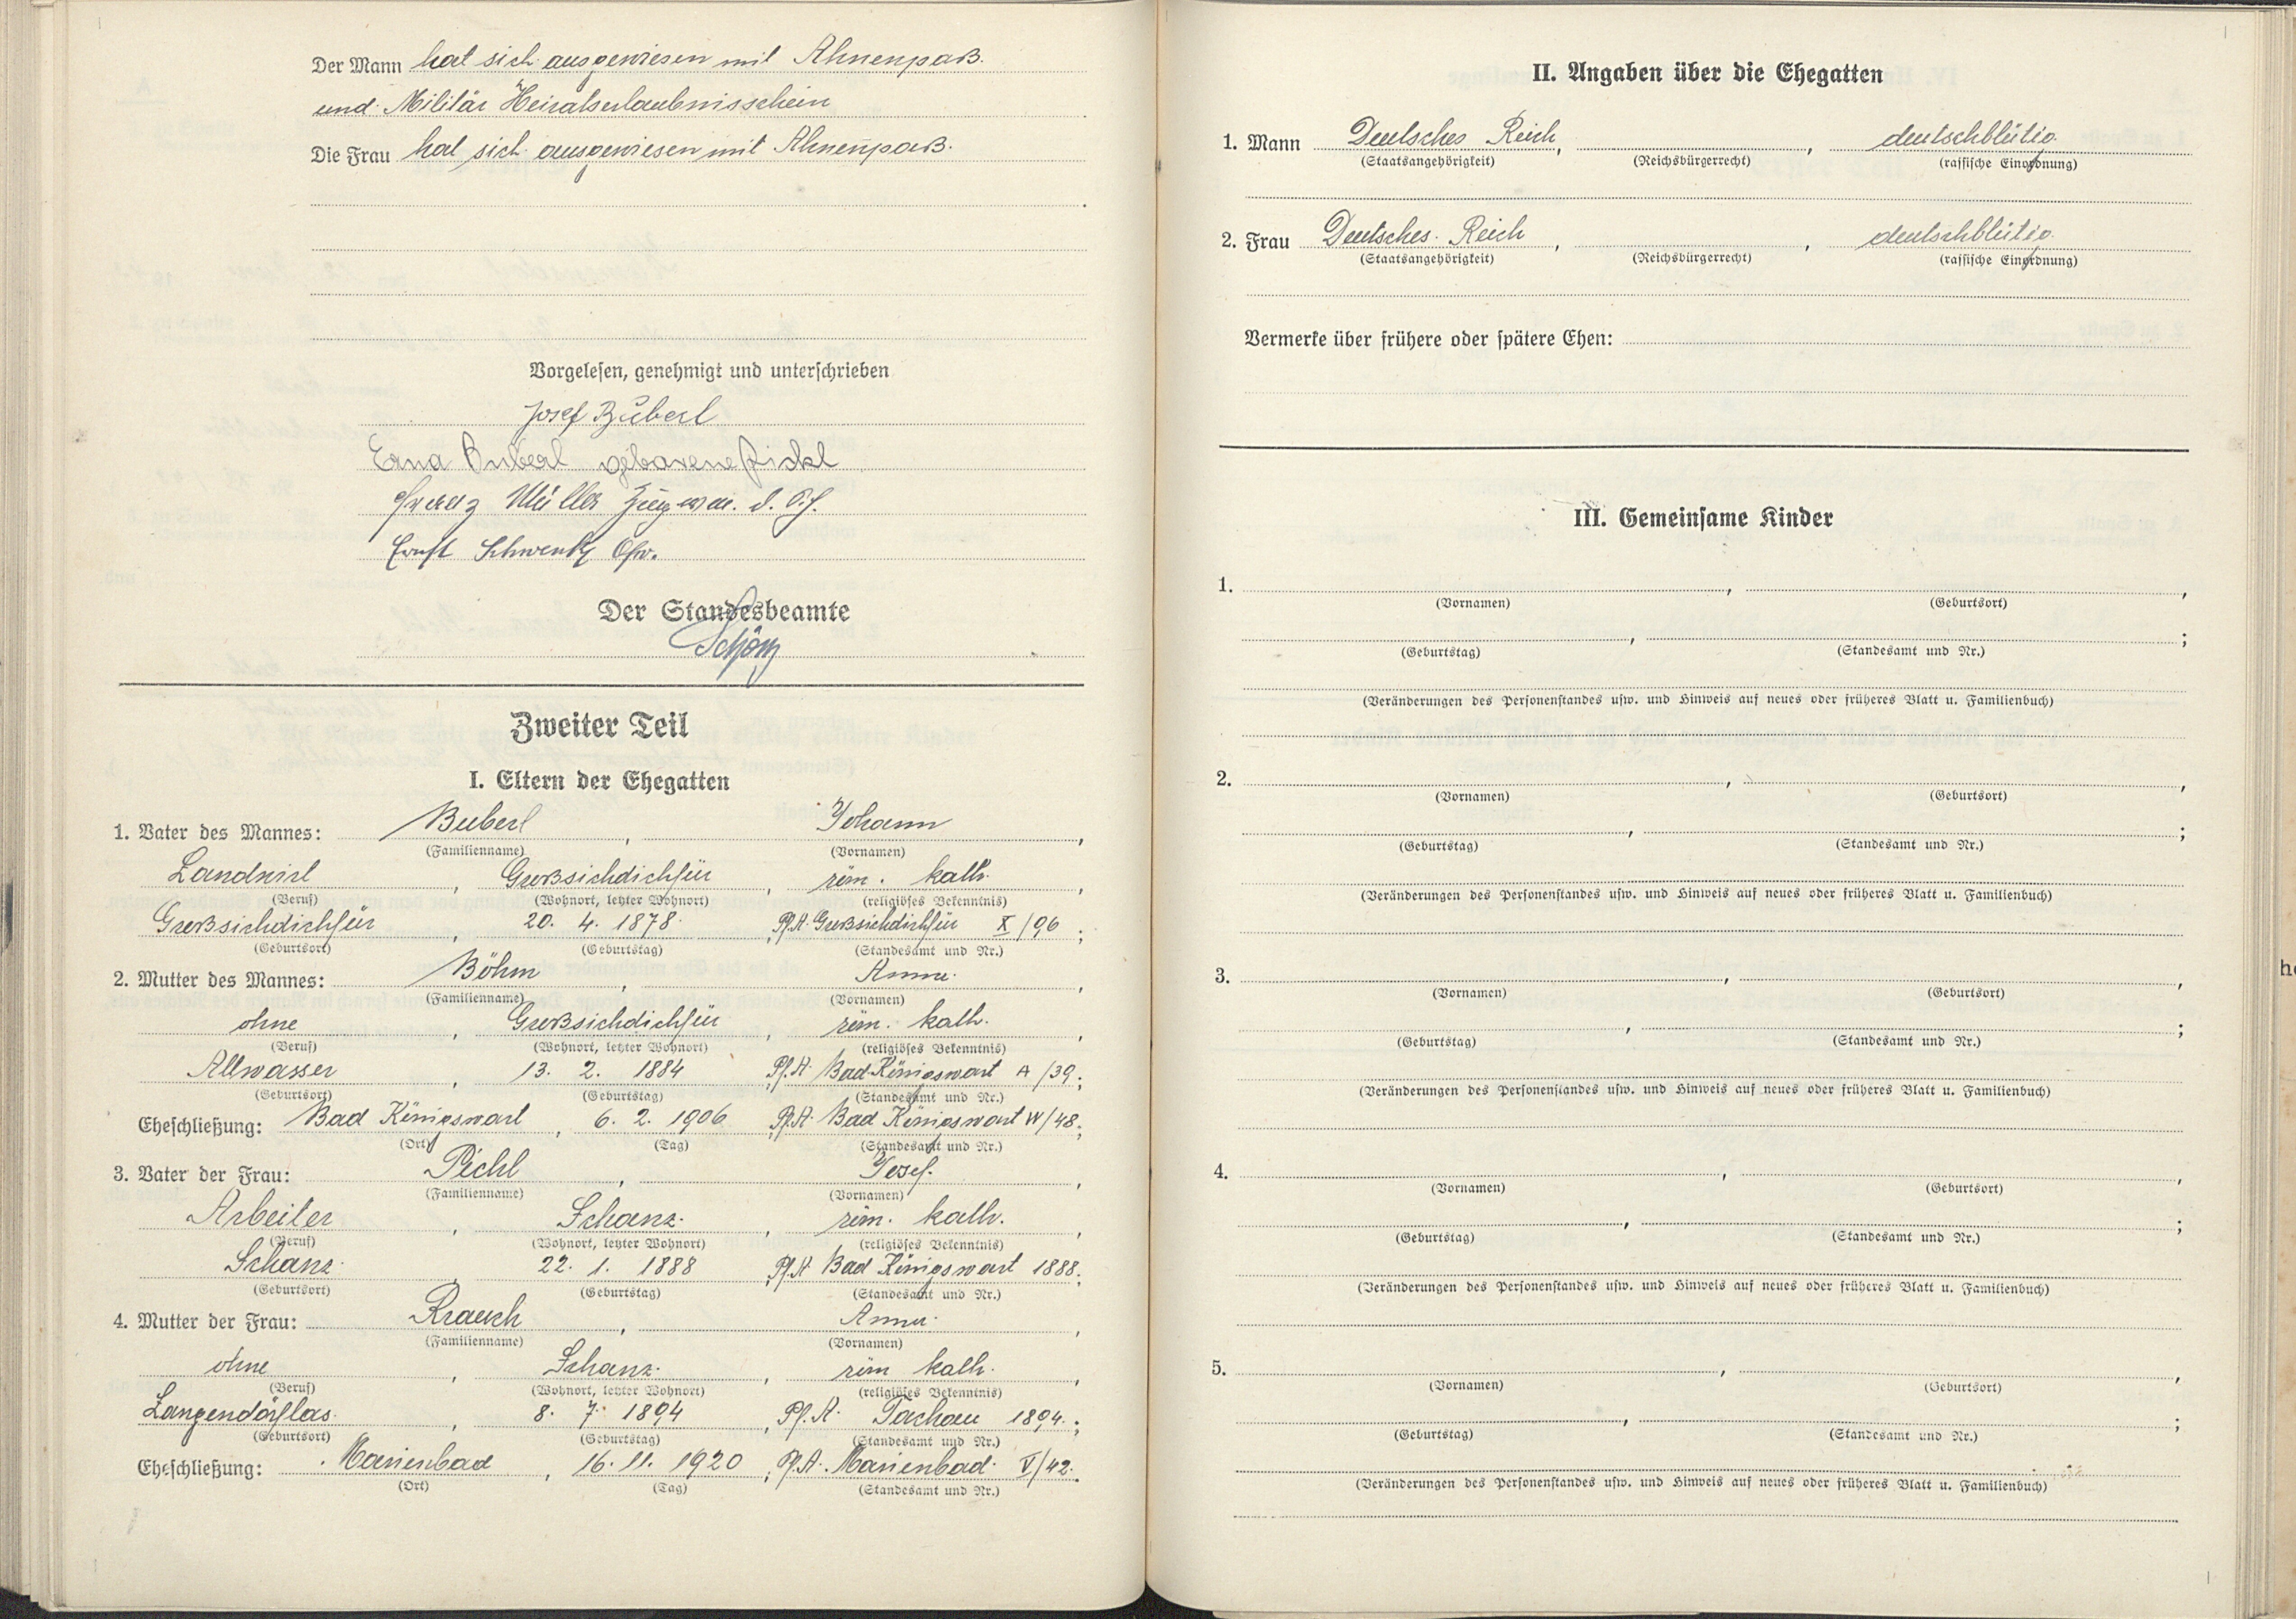 Der Mann hat sich ausgewiesen mit Ahnenpaß.
und Militär Heiratserlaubnisschein
Die Frau hat sich ausgewiesen mit Ahnenpaß.
Vorgelesen, genehmigt und unterschrieben
Josef Buberl
Erna Buberl geborene Pichl
Franz Müller
Ernst Schwenk
Der Standesbeamte
Zweiter Teil
I. Eltern der Ehegatten
1. Vater des Mannes: Buberl, Johann,
(Familienname) (Vornamen)
Landwirt, Großsichdichfür, röm. kath.,
(Beruf) (Wohnort, letzter Wohnort) (religiöses Bekenntnis)
Großsichdichfür, 20. 4. 1878, Pf.A. Großsichdichfür X/96;
(Geburtsort) (Geburtstag) (Standesamt und Nr.)
2. Mutter des Mannes: Böhm, Anna,
(Familienname) (Vornamen)
ohne, Großsichdichfür, röm. kath.,
(Beruf) (Wohnort, letzter Wohnort) (religiöses Bekenntnis)
Altwasser, 13. 2. 1884, Pf.A. Bad Königswart A/39;
(Geburtsort) (Geburtstag) (Standesamt und Nr.)
Eheschließung: Bad Königswart, 6. 2. 1906, Pf.A. Bad Königswart IV/48;
(Ort) (Tag) (Standesamt und Nr.)
3. Vater der Frau: Pichl, Josef,
(Familienname) (Vornamen)
Arbeiter, Schanz, röm. kath.,
(Beruf) (Wohnort, letzter Wohnort) (religiöses Bekenntnis)
Schanz, 22. 1. 1888, Pf.A. Bad Königswart 1888;
(Geburtsort) (Geburtstag) (Standesamt und Nr.)
4. Mutter der Frau: , Anna,
(Familienname) (Vornamen)
ohne, Schanz, röm kath.,
(Beruf) (Wohnort, letzter Wohnort) (religiöses Bekenntnis)
Langendörflas, 8. 7. 1894, Pf.A. Tachau 1894;
(Geburtsort) (Geburtstag) (Standesamt und Nr.)
Eheschließung: Marienbad, 16. 11. 1920, Pf.A. Marienbad V/42.
(Ort) (Tag) (Standesamt und Nr.)
II. Angaben über die Ehegatten
1. Mann Deutsches Reich, , deutschblütig
(Staatsangehörigkeit) (Reichsbürgerrecht) (rassische Einordnung)
2. Frau Deutsches Reich, , deutschblütig
(Staatsangehörigkeit) (Reichsbürgerrecht) (rassische Einordnung)
Vermerke über frühere oder spätere Ehen:
III. Gemeinsame Kinder
1. , ,
(Vornamen) (Geburtsort)
, ;
(Geburtstag) (Standesamt und Nr.)
(Veränderungen des Personenstandes usw. und Hinweis auf neues oder früheres Blatt u. Familienbuch)
2. , ,
(Vornamen) (Geburtsort)
, ;
(Geburtstag) (Standesamt und Nr.)
(Veränderungen des Personenstandes usw. und Hinweis auf neues oder früheres Blatt u. Familienbuch)
3. , ,
(Vornamen) (Geburtsort)
, ;
(Geburtstag) (Standesamt und Nr.)
(Veränderungen des Personenstandes usw. und Hinweis auf neues oder früheres Blatt u. Familienbuch)
4. , ,
(Vornamen) (Geburtsort)
, ;
(Geburtstag) (Standesamt und Nr.)
(Veränderungen des Personenstandes usw. und Hinweis auf neues oder früheres Blatt u. Familienbuch)
5. , ,
(Vornamen) (Geburtsort)
, ;
(Geburtstag) (Standesamt und Nr.)
(Veränderungen des Personenstandes usw. und Hinweis auf neues oder früheres Blatt u. Familienbuch)